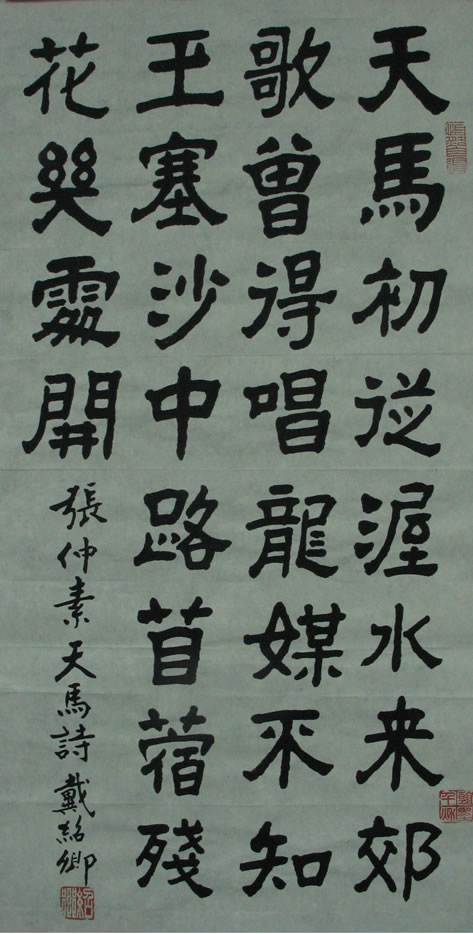 天馬初從渥水来郊
歌曾得唱龍媒不知
玉塞沙中路苜蓿殘
花幾處開
張仲素天馬詩戴紹卿